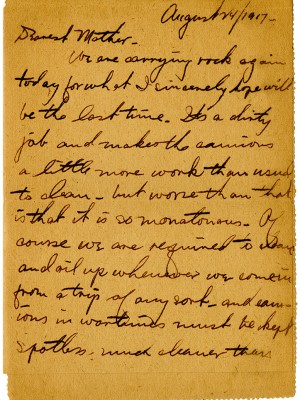 August 24/1917-
Dearest Mother-
We are carrying rock again
today for what I sincerely hope will
be the last time. It's a dirty
job and makes the camions
a little more work than usual
to clean - but worse than that
is that it is so monotonous. Of
course we are required to clean
and oil up whenever we come in
from a trip of any sort - and cam-
ions in wartimes must be kept
spotless, much cleaner than